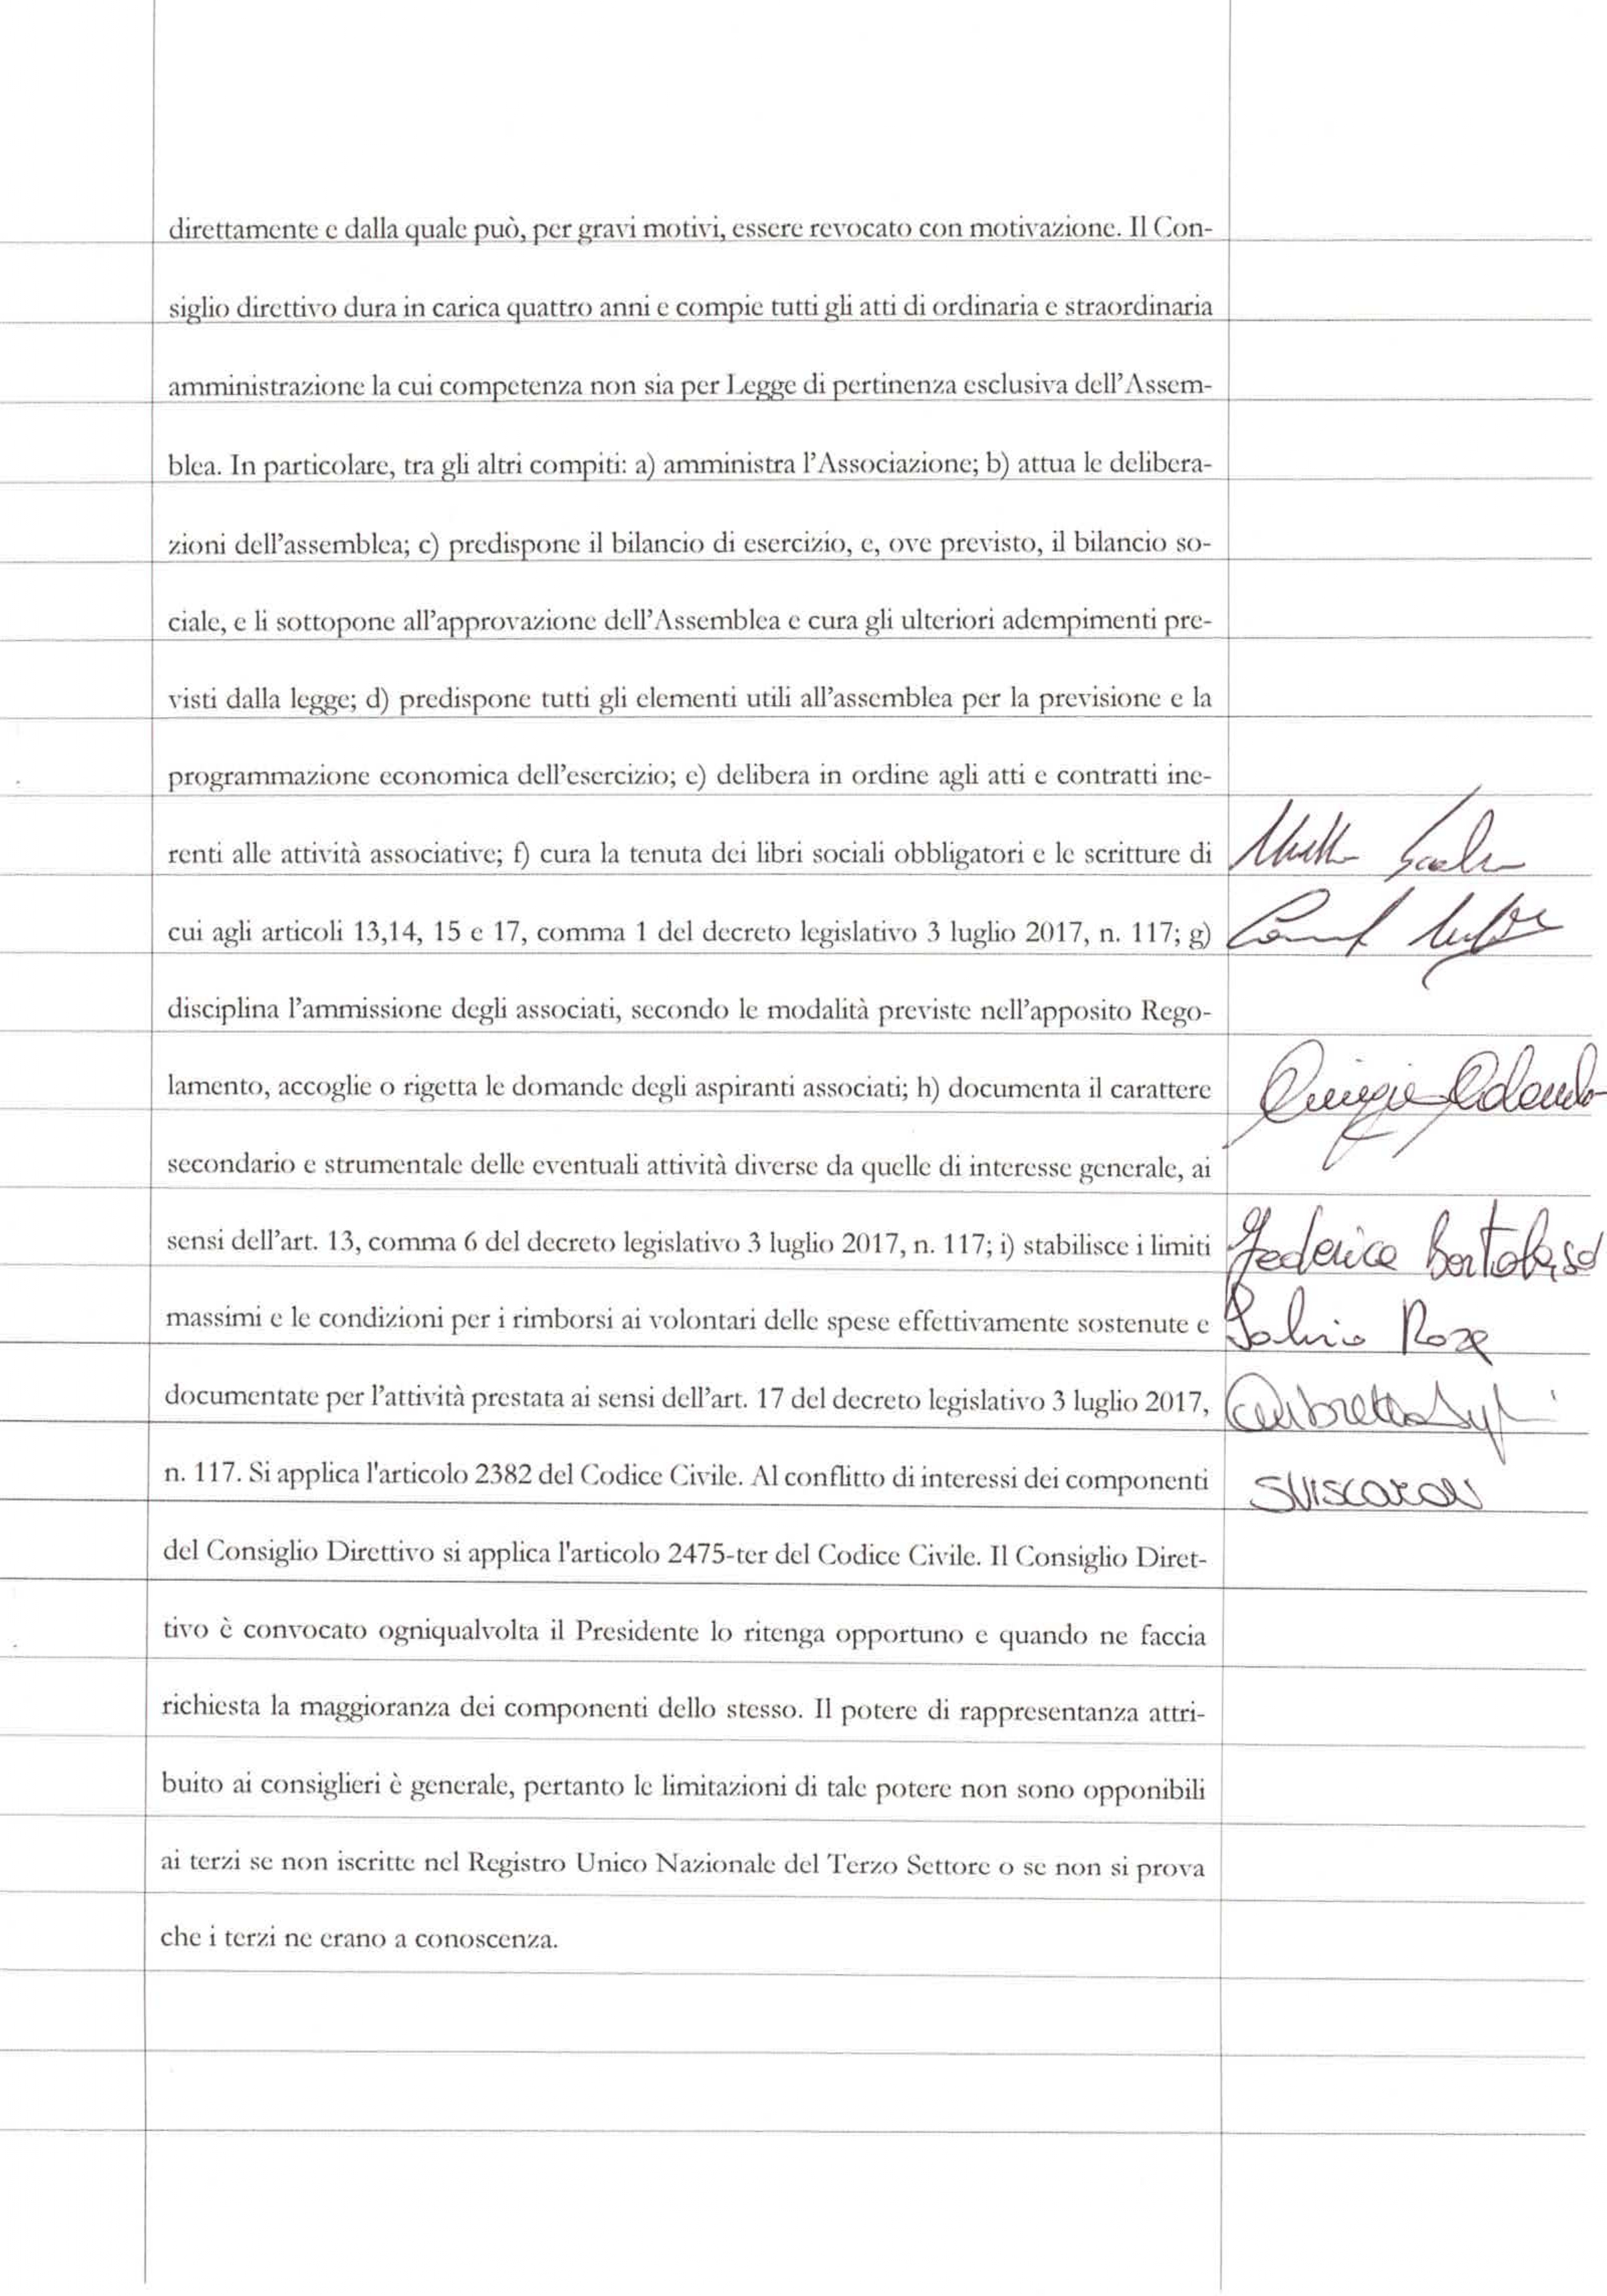 direttamente e dalla quale può, per gravi motivi, essere revocato con motivazione. Il Con-
siglio direttivo dura in carica quattro anni e compie tutti gli atti di ordinaria e straordinaria
amministrazione la cui competenza non sia per Legge di pertinenza esclusiva dell'Assem-
blea. In particolare, tra gli altri compiti: a) amministra l'Associazione; b) attua le delibera-
zioni dell'assemblea; c) predispone il bilancio di esercizio, e, ove previsto, il bilancio so-
ciale, e li sottopone all'approvazione dell'Assemblea e cura gli ulteriori adempimenti pre-
visti dalla legge; d) predispone tutti gli elementi utili all'assemblea per la previsione e la
programmazione economica dell'esercizio; e) delibera in ordine agli atti e contratti ine-
renti alle attività associative; f) cura la tenuta dei libri sociali obbligatori e le scritture di
cui agli articoli 13,14, 15 e 17, comma 1 del decreto legislativo 3 luglio 2017, n. 117; g)
disciplina l'ammissione degli associati, secondo le modalità previste nell'apposito Rego-
lamento, accoglie o rigetta le domande degli aspiranti associati; h) documenta il carattere
secondario e strumentale delle eventuali attività diverse da quelle di interesse generale, ai
sensi dell'art. 13, comma 6 del decreto legislativo 3 luglio 2017, n. 117; i) stabilisce i limiti
Federica
massimi e le condizioni per i rimborsi ai volontari delle spese effettivamente sostenute e
documentate per l'attività prestata ai sensi dell'art. 17 del decreto legislativo 3 luglio 2017,
n. 117. Si applica l'articolo 2382 del Codice Civile. Al conflitto di interessi dei componenti
del Consiglio Direttivo si applica l'articolo 2475-ter del Codice Civile. Il Consiglio Diret-
tivo è convocato ogniqualvolta il Presidente lo ritenga opportuno e quando ne faccia
richiesta la maggioranza dei componenti dello stesso. Il potere di rappresentanza attri-
buito ai consiglieri è generale, pertanto le limitazioni di tale potere non sono opponibili
ai terzi se non iscritte nel Registro Unico Nazionale del Terzo Settore o se non si prova
che i terzi ne erano a conoscenza.